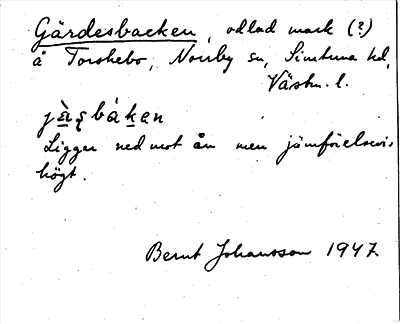 Gärdesbacken, odlad mark (?)
å Torshebo, Norrby sn, Simtuna hd,
Västm. l.
Ligger ned mot ån men jämförelsevis
högt.
Bernt Johansson 1947